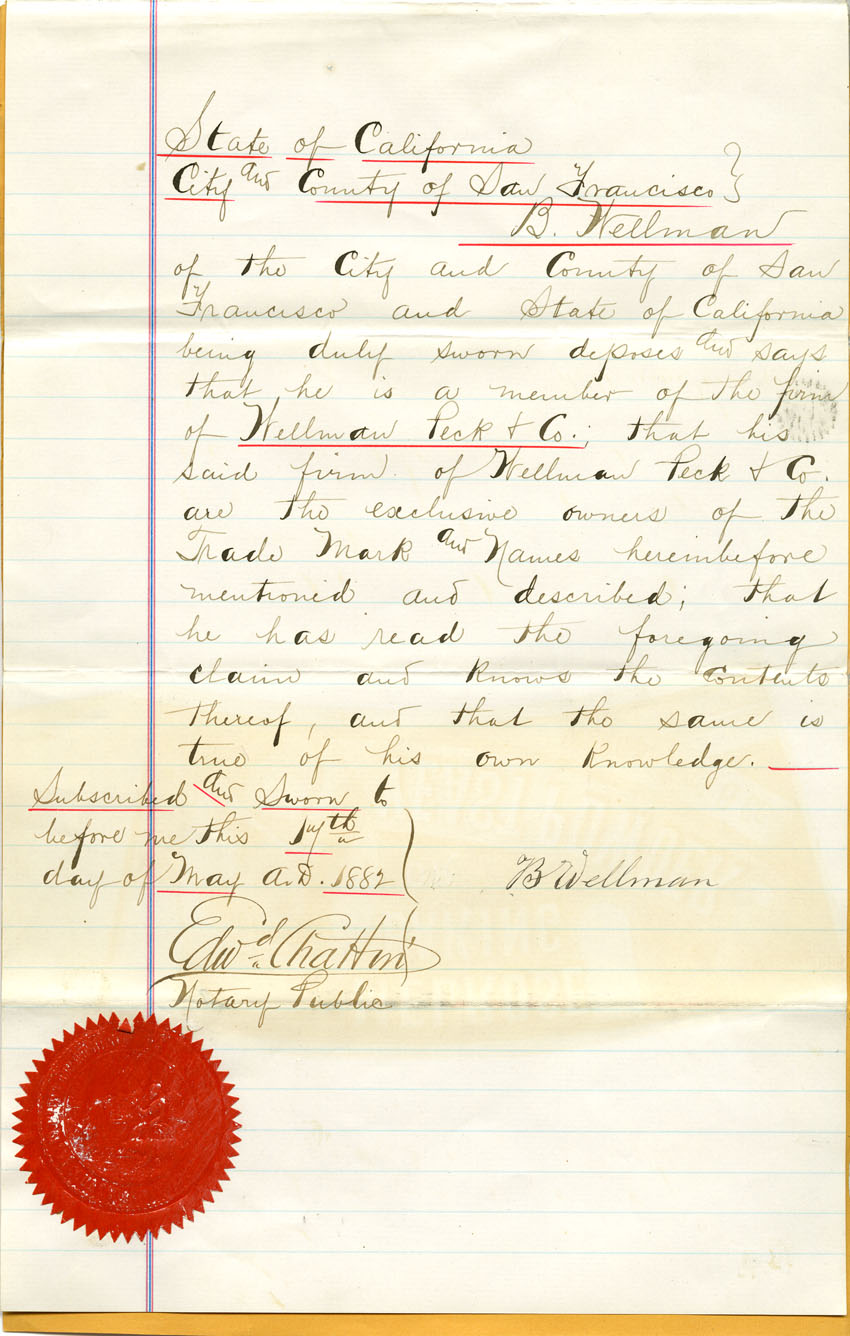 State of California
City and County of San Francisco }
B. Wellman
of the City and County of San
Francisco and State of California
being duly sworn deposes and says
that he is a member of the firm
of Wellman Peck & Co.; that his
said firm of Wellman Peck & Co.
are the exclusive owners of the
Trade Mark and Names hereinbefore
mentioned and described; that
he has read the foregoing
claim and knows the contents
thereof, and that the same is
true of his own knowledge.
Subscribed and Sworn to
before me this
day of May A.D. 1882
B Wellman
Edwd Chattin
Notary Public